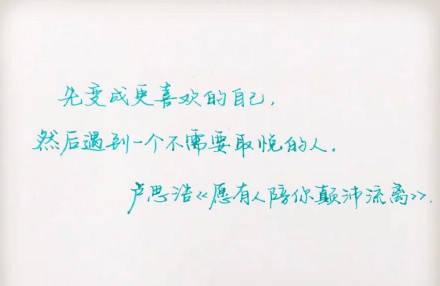 先变成更喜欢的自己,
然后遇到一个不需要取悦的人.
卢思浩《愿有人陪你颠沛流离》.